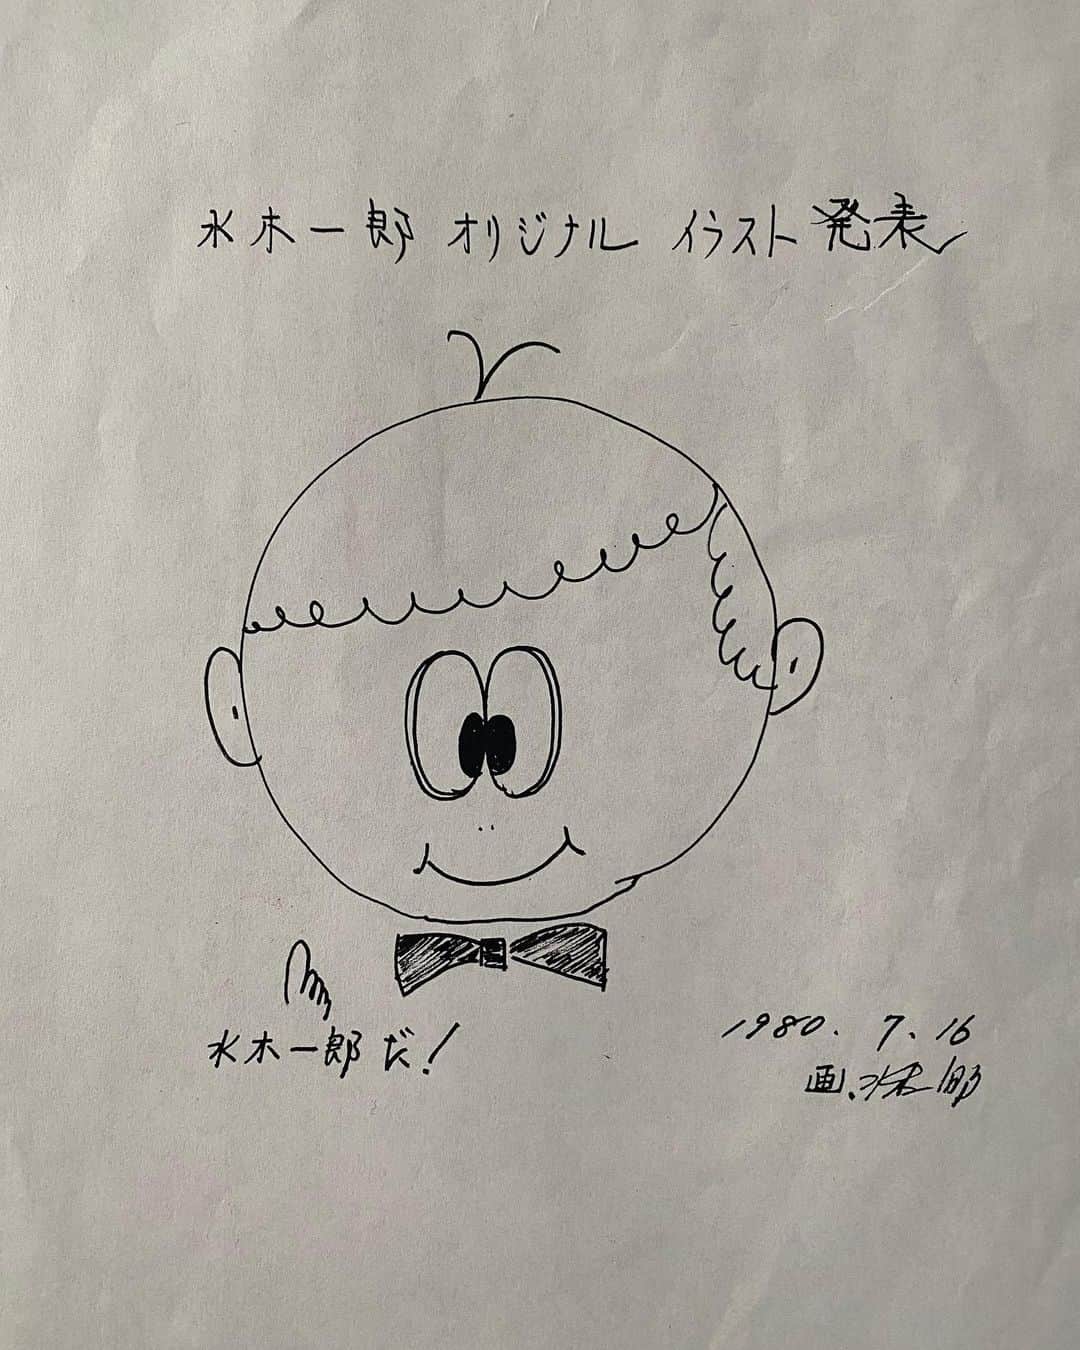 水木一郎 オリジナル イラスト 発表
水木一郎だ!
1980. 7. 16
画、水木一郎